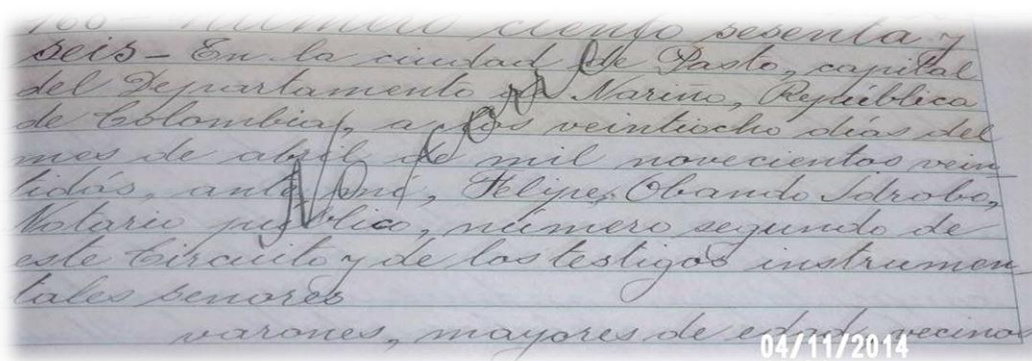 166 - Número ciento sesenta y
seis - En la ciudad de Pasto, capital
del Departamento de Nariño, República
de Colombia, a los veintiocho días del
mes de abril de mil novecientos vein
tidós, ante mí, Felipe Obando Idrobo,
Notario público, número segundo de
este Circuito y de los testigos instrumen
tales señores
varones, mayores de edad, vecinos
04/11/2014